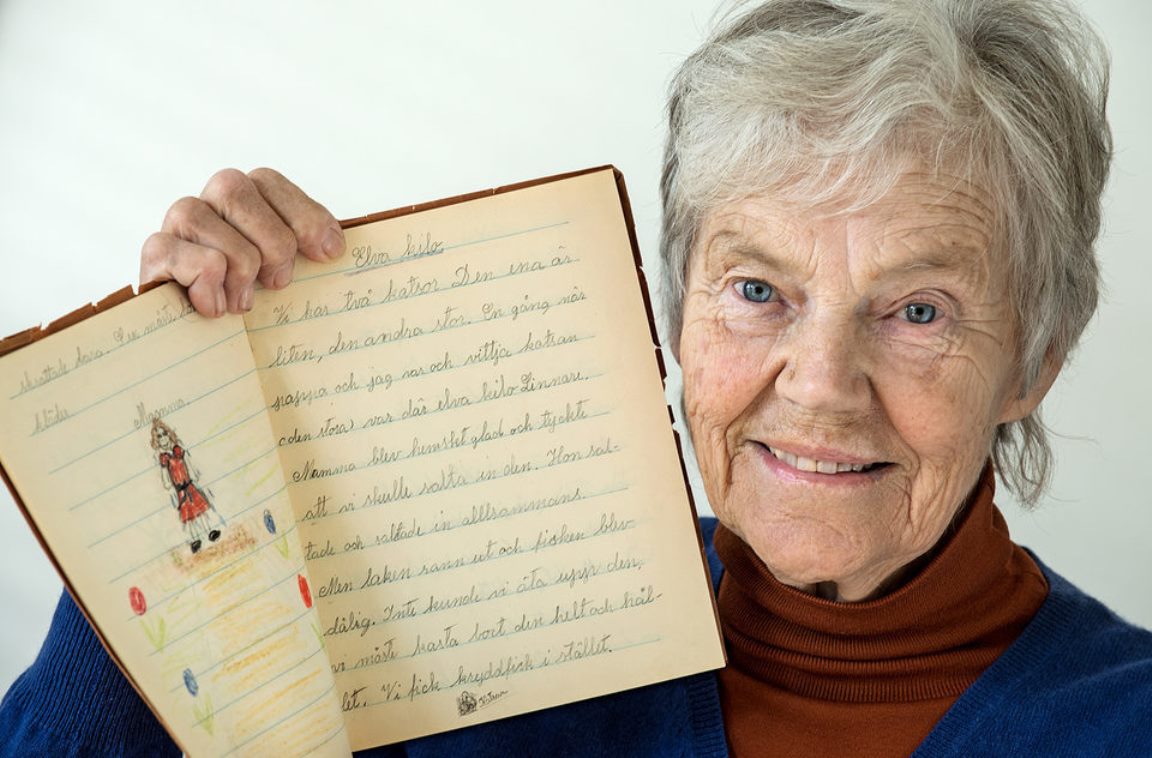 skrattade bara. Sen måste
kläder.
Mamma.
Elva kilo
Vi har två katsor Den ena är
liten, den andra stor. En gång när
pappa och jag var och vittja katsan
(den stora) var där elva kilo
Mamma blev hemskt glad och tyckte
att vi skulle salta in den. Hon sal-
tade och saltade in alltsammans.
Men laken rann ut och fisken blev
dålig. Inte kunde vi äta upp den,
vi måste kasta bort den helt och hål-
let. Vi fick kryddfisk i stället.